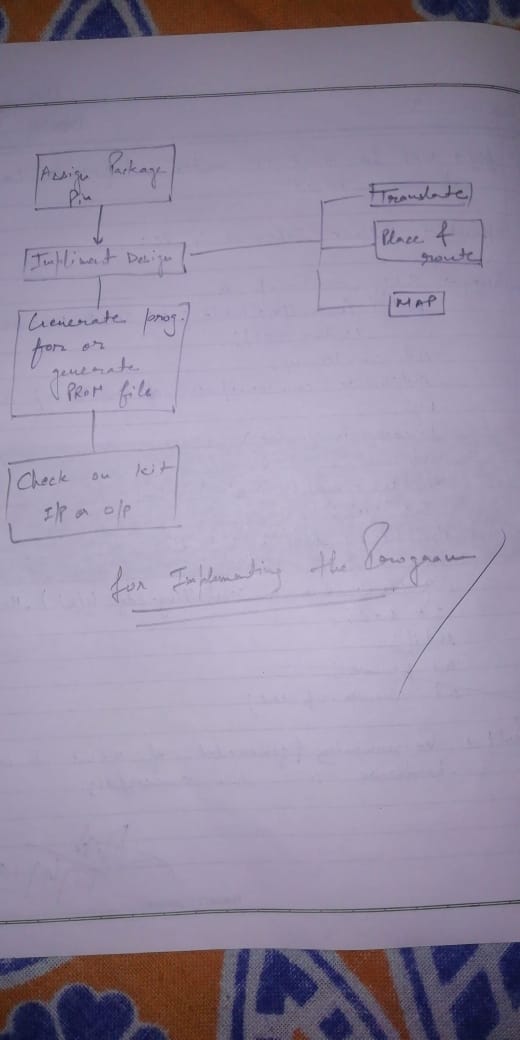 Assign Package
Pin
Impliment Design
Translate
Place &
route
MAP
Generate prog.
for or
generate
PROM file
Check on kit
I/P or O/P
for Implementing the Program